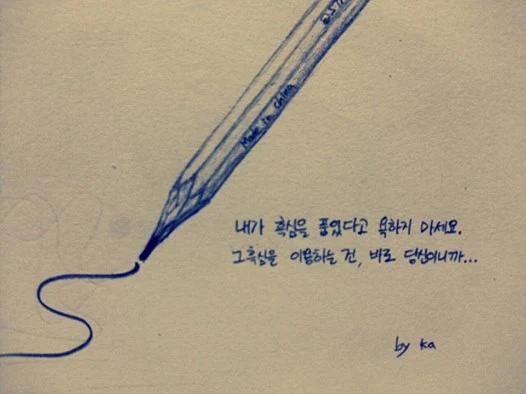 Made in china
내가 흑심을 품었다고 욕하지 마세요.
그 흑심을 이용하는 건, 바로 당신이니까...
by ka